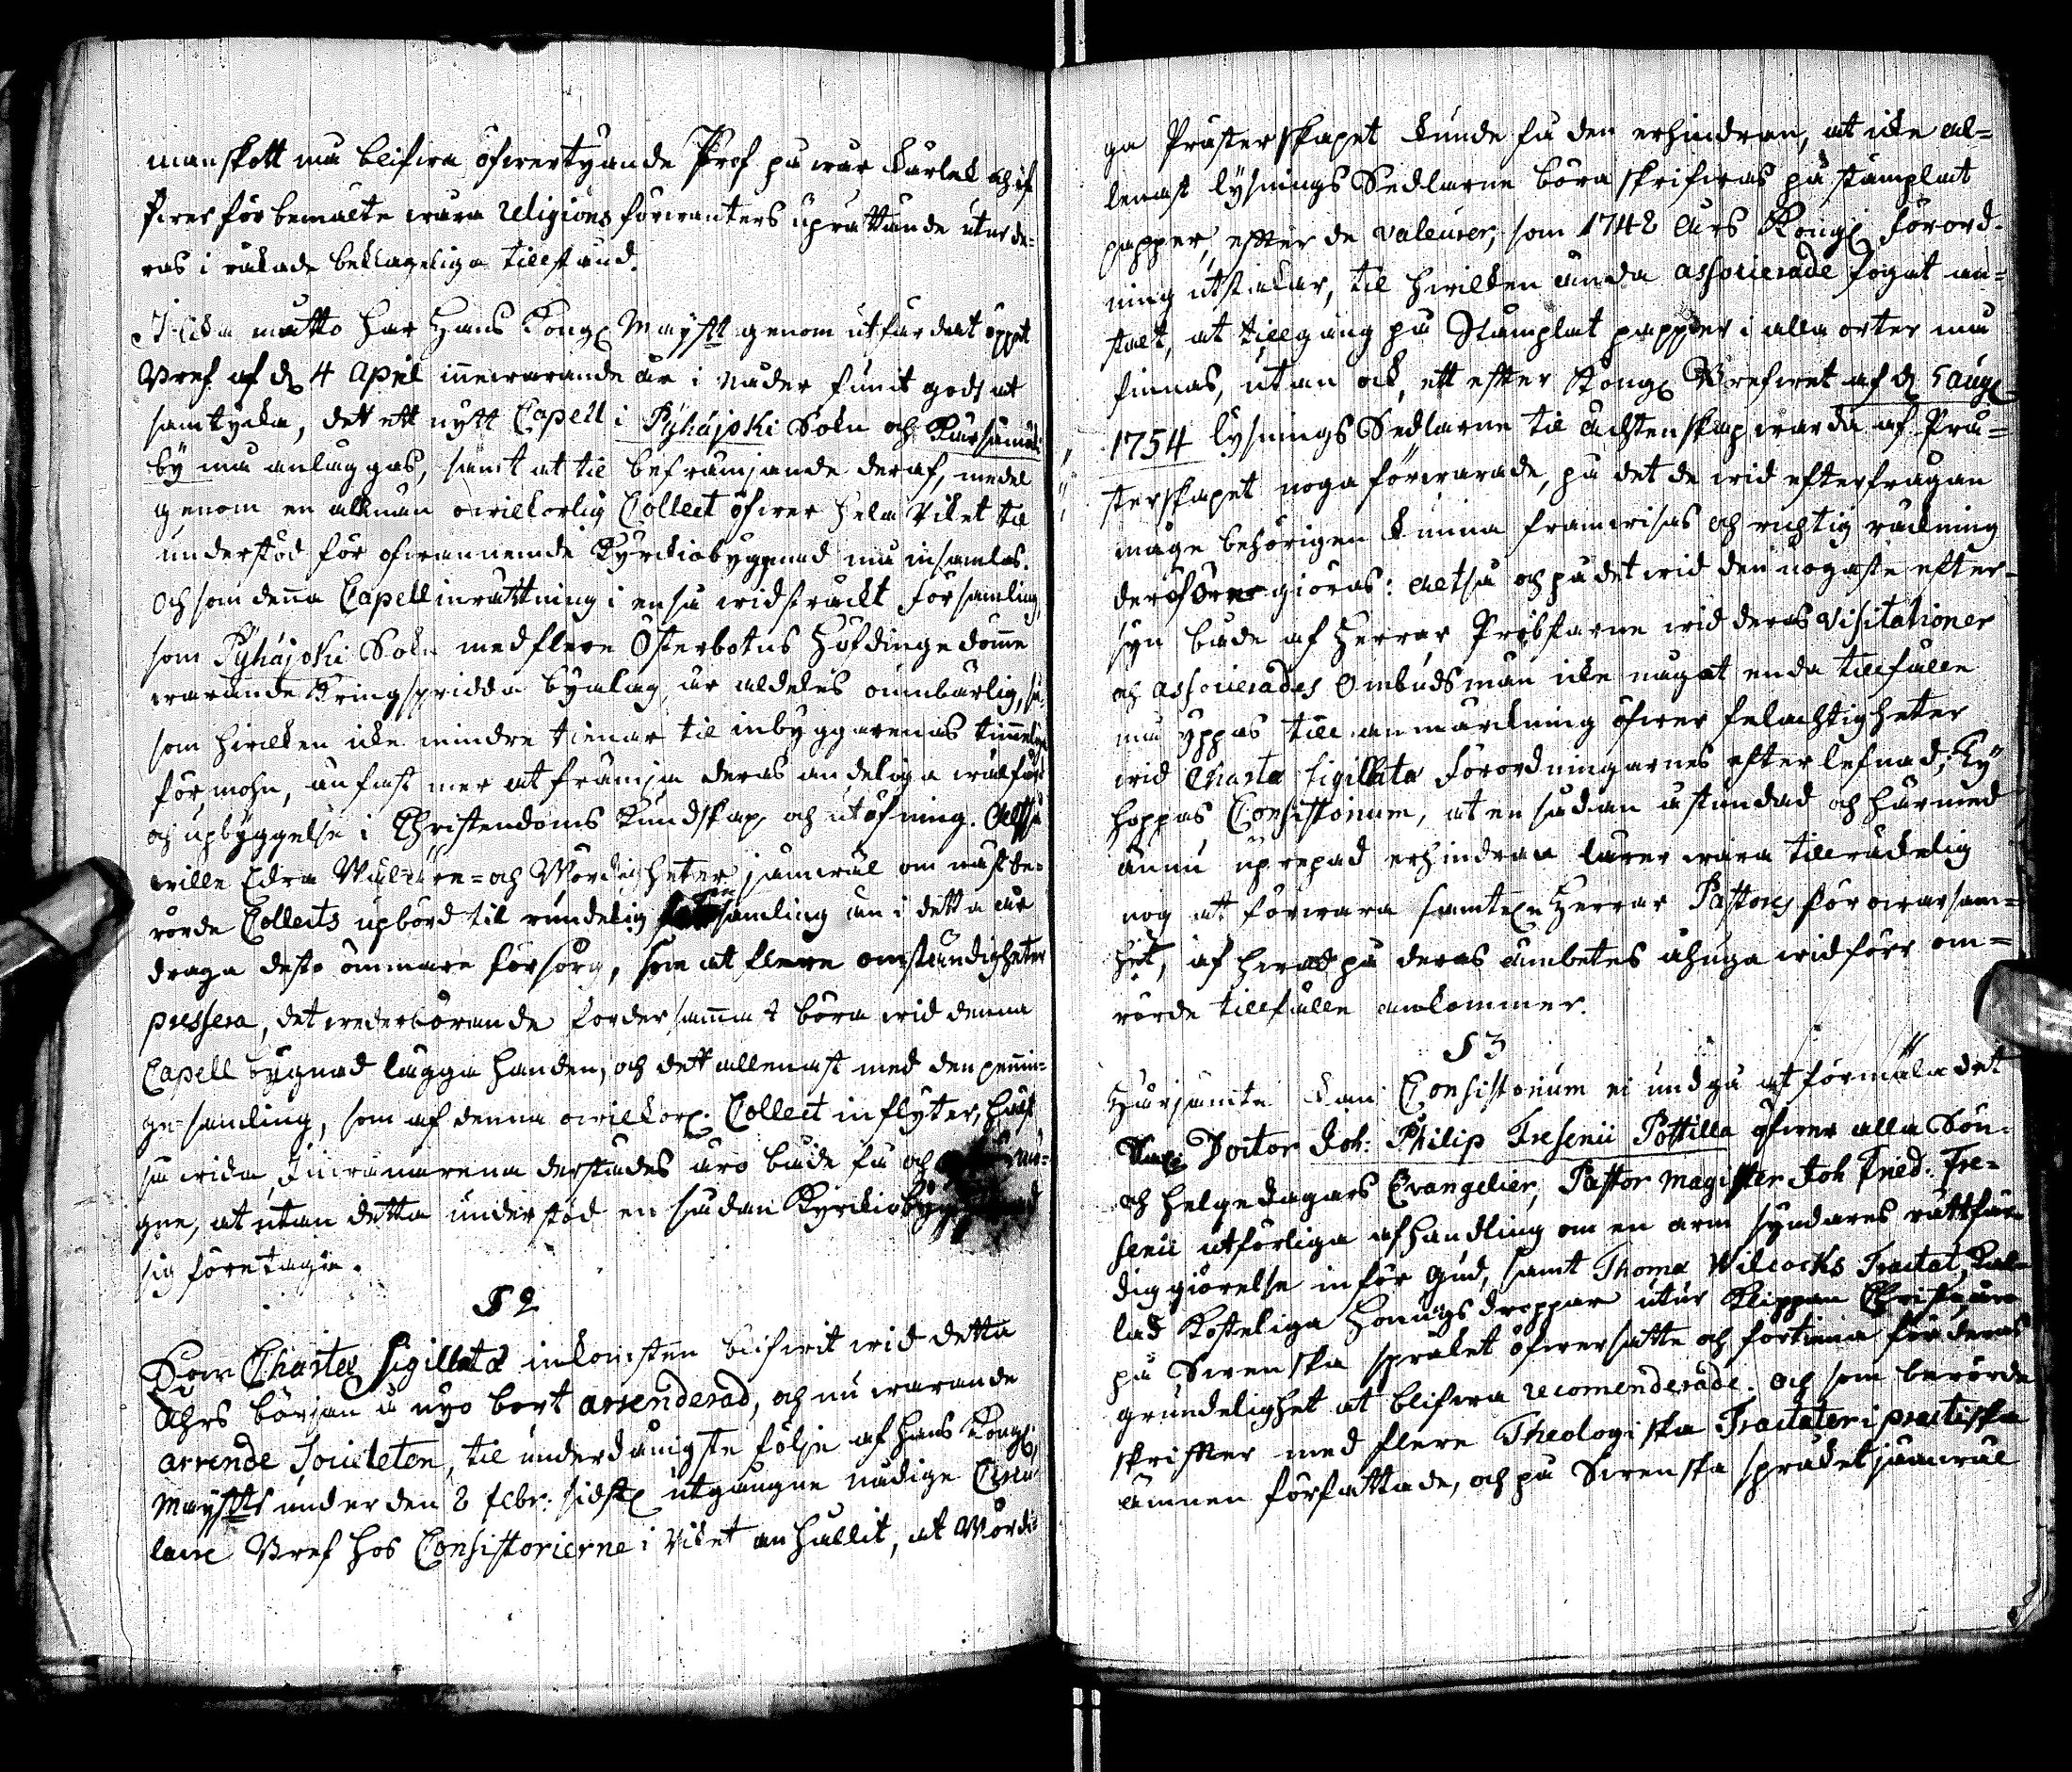 manskott må blifwa öfwertygande Prof på wår kärlek och if
fwer för bemälte wåra religions förwanters uprättande utur de=
ras i råkade beklageliga tillstånd.
I lika motto har Hans Kongl Mayst genom utfärdat öppet
Bref af d 4 April innewarande år i nåder funnit godt at
samtycka, det ett nytt Capell i Pyhäjoki Sokn och Kärsämäki
by må anläggas, samt at til befrämjande deraf, medel
genom en allmän owilkorlig Collect öfwer hela Riket til
understöd för ofwannemde Kyrkiobyggnad må insamlas.
Och som denna Capellinrättning i en så widsträckt församling,
som Pyhäjoki Sokn med flere Österbotns Höfdingedöme
warande kringspridda byalag, är aldeles oumbärlig, så
som hwilken icke mindre tienar til inbyggarenas timmelige
förmohn, än fast mer at främja deras andeliga wälfärd
och upbyggelse i Christendoms Kundskap och utöfning. Altså
wille Edra Wälähre= och Wördigheter jemwäl om näst be=
rörde Collects upbörd til rundelig församling än i detta år
draga desto ömmare försorg, som at flere omständigheter
pressera, det wederbörande fordersammast böra wid denna
Capell bygnad lägga handen, och dett allenast med den pennin=
ge=samling, som af denna owilkorl. Collect inflyter, hälst
så wida Inwånarena derstädes äro både få och
gne, at utan detta understöd en sådan Kyrkiobyggnad
sig företaga.
§ 2
Som Charta Sigillata inkomsten blifwit wid detta
Åhrs början å nyo bort arrenderad, och nu warande
arrende Societeten, til underdånigste följe af Hans Kongl
Maysts under den 8 febr. sidstl utgångne nådige Circu
laire Bref hos Consistorierne i Riket anhållit, at Wördi=
ga Prästerskapet kunde få den erhindran, at icke al=
lenast lysnings Sedlarne böra skrifwas på stämplat
papper, efter de valeurer, som 1748 års Kongl Förord=
ning utstakar, til hwilken ända associerade fogat an=
stalt, at tillgång på Stämplat papper i alla orter må
finnas, utan ock, ett efter Kongl Brefwet af d 5 aug
1754 lysnings Sedlarne til ächtenskap warda af Prä=
sterskapet noga förwarade, på det de wid efterfrågan
måge behörigen kunna framwisas och richtig räkning
deröfwer giöras: altså och på det wid den nogaste efter=
syn både af Herrar Probstarne wid deras Visitationer
och associerades Ombudsmän icke något enda tillfälle
må yppas till anmärckning öfwer felachtigheter
wid Charta Sigillata Förordningarnes efterlefnad; Ty
hoppas Consistorium, at en sådan åstundad och härmed
ännu uprepad erhindran lärer wara tillräckelig
nog att förwara samtel Herrar Pastores för owarsam=
het, af hwad på deras ämbetes åhuga widförr om=
rörde tillfälle ankommer.
§ 3
Härjämte kan Consistorium ei undgå at förmäla det
Sal Doctor Joh: Philip Fresenii Postilla öfwer alla Sön=
och helgedagars Evangelier, Pastor Magister Joh Fried: Fre=
senii utförliga afhandling om en arm syndares rättfär
diggiörelse inför Gud, samt Thomæ Wilcocks Tractat, kal=
lad Kosteliga Honungs droppar utur Klippan Christo, äro
på Swenska språket öfwersatte och förtiena för deras
grundelighet at blifwa recomenderade. Och som berörde
skrifter med flere Theologiska Tractater i practiska
ämnen författade, och på Swenska språket jämwäl